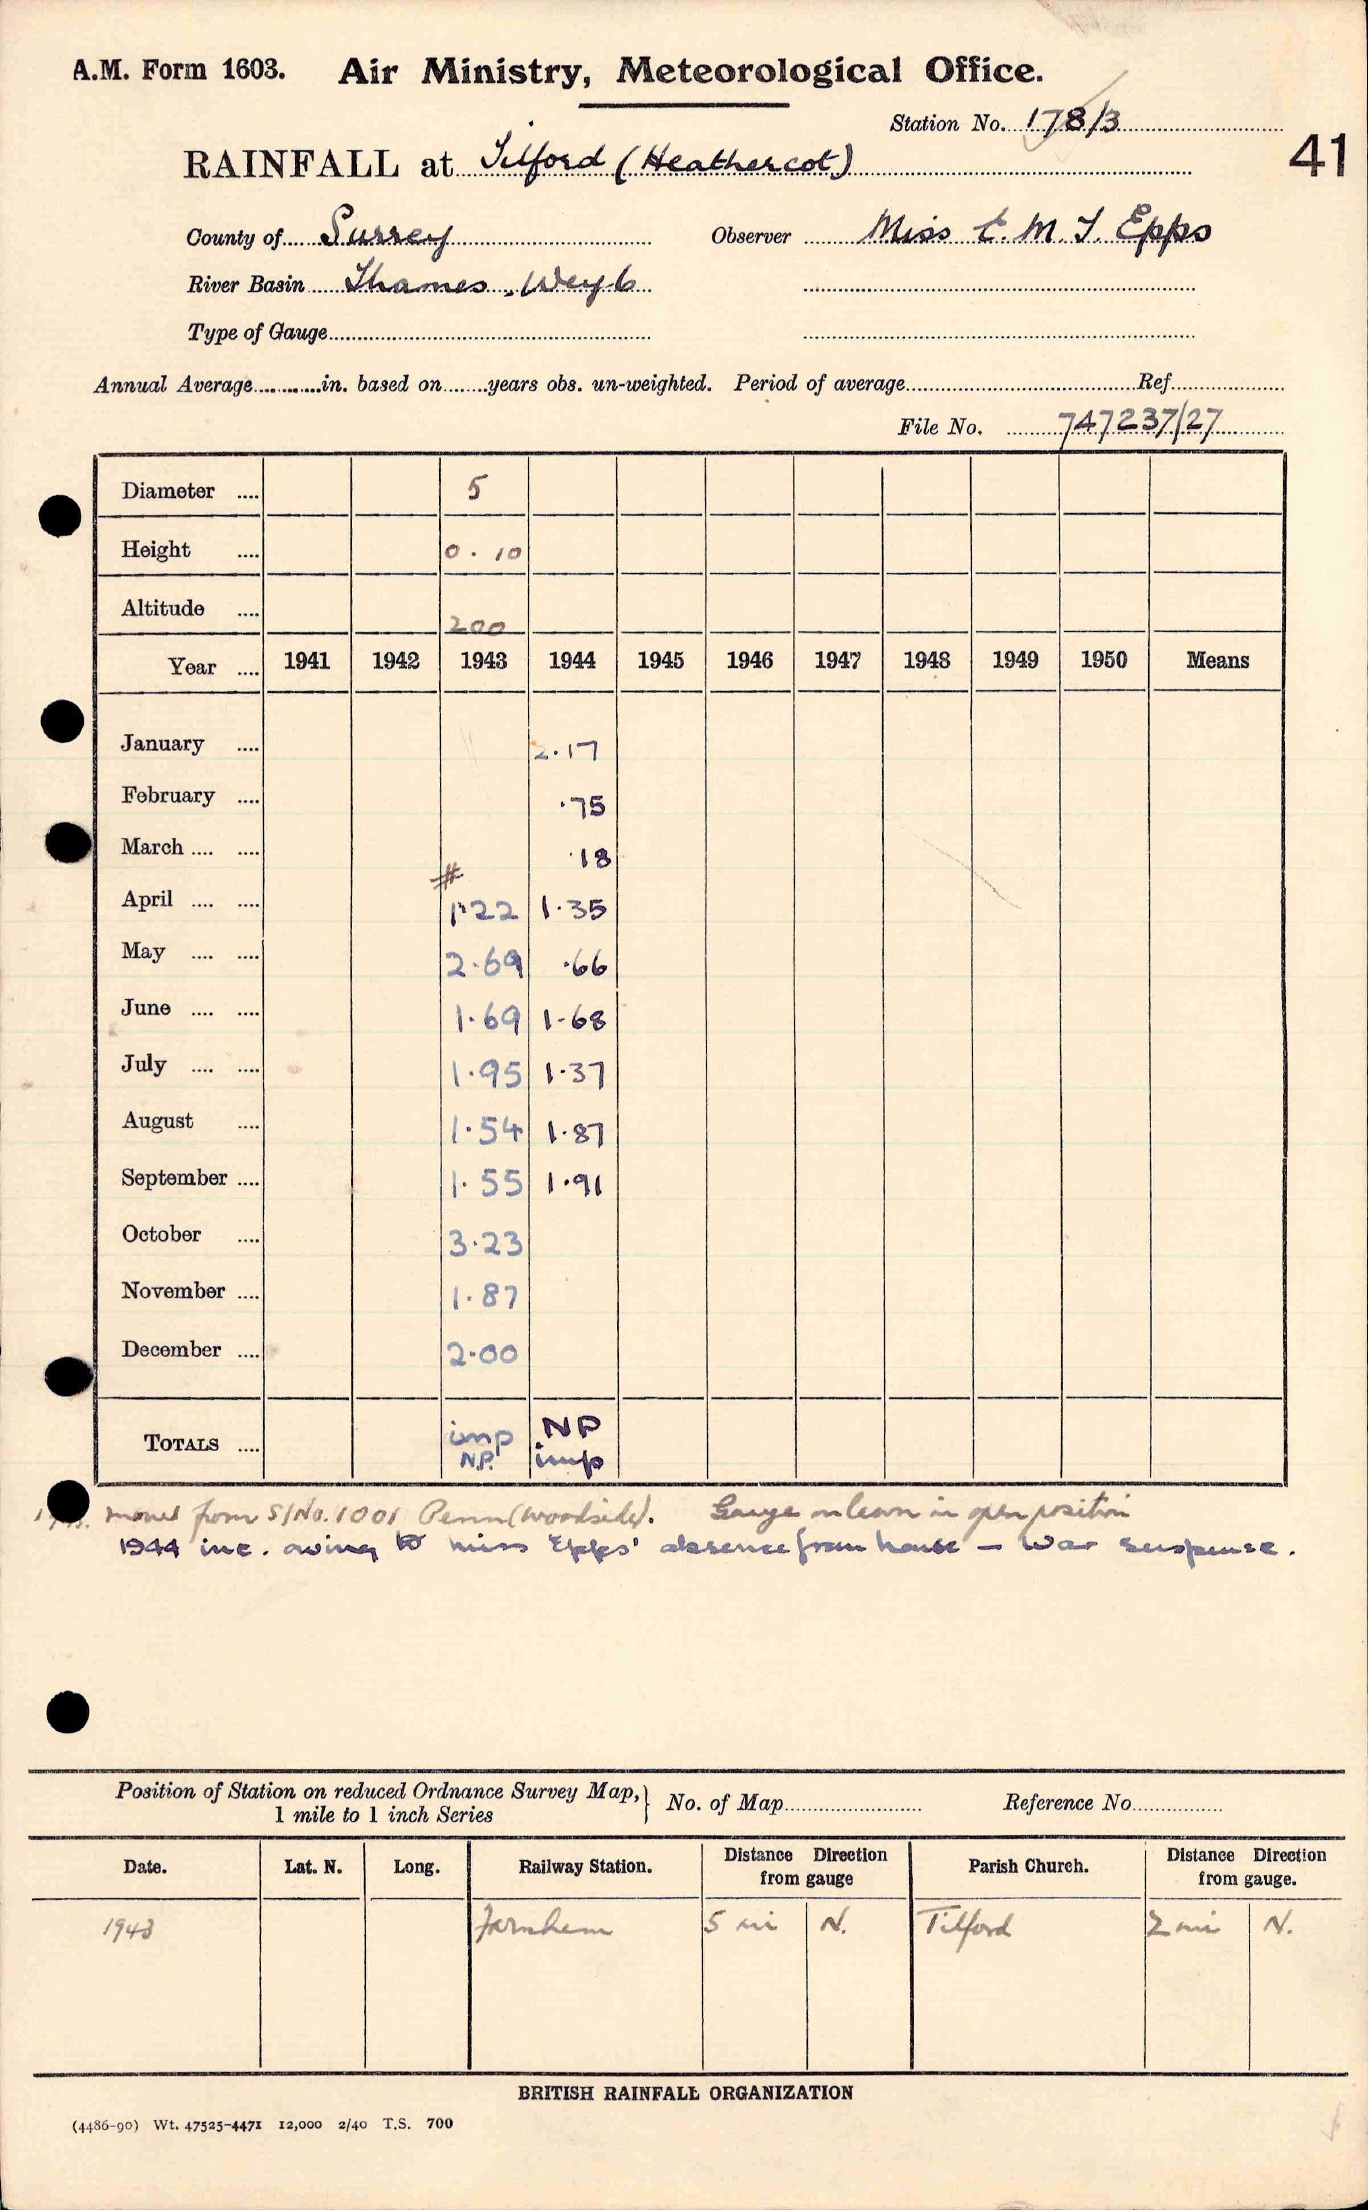 A.M. Form 1603. Air Ministry, Meteorological Office.
Station No. 178/3
41
RAINFALL at Tilford (Heathercot)
County of Surrey Observer Miss E. M. J. Epps
River Basin Thames. Wey 6
Type of Gauge
Annual Average in. based on years obs. un-weighted. Period of average Ref
File No. 747237/27
Diameter .... 5
Height .... 0. 10
Altitude .... 200
Year .... 1941 1942 1943 1944 1945 1946 1947 1948 1949 1950 Means
January .... 2.17
February .... .75
March .... .... .18
#
April .... .... 1.22 1.35
May .... .... 2.69 .66
June .... .... 1.69 1.68
July .... .... 1.95 1.37
August .... 1.54 1.87
September .... 1.55 1.91
October .... 3.23
November .... 1.87
December .... 2.00
TOTALS .... imp N.P. NP imp
moved from S/No. 1001 Penn (Woodside). Gauge on lawn in open position
1944 inc. owing to Miss Epps' absence from house — War suspense.
Position of Station on reduced Ordnance Survey Map, } No. of Map Reference No
1 mile to 1 inch Series
Date. Lat. N. Long. Railway Station. Distance Direction from gauge Parish Church. Distance Direction from gauge.
1943 Farnham 5 mi N. Tilford 2 mi N.
BRITISH RAINFALL ORGANIZATION
(4486-90) Wt. 47525-4471 12,000 2/40 T.S. 700